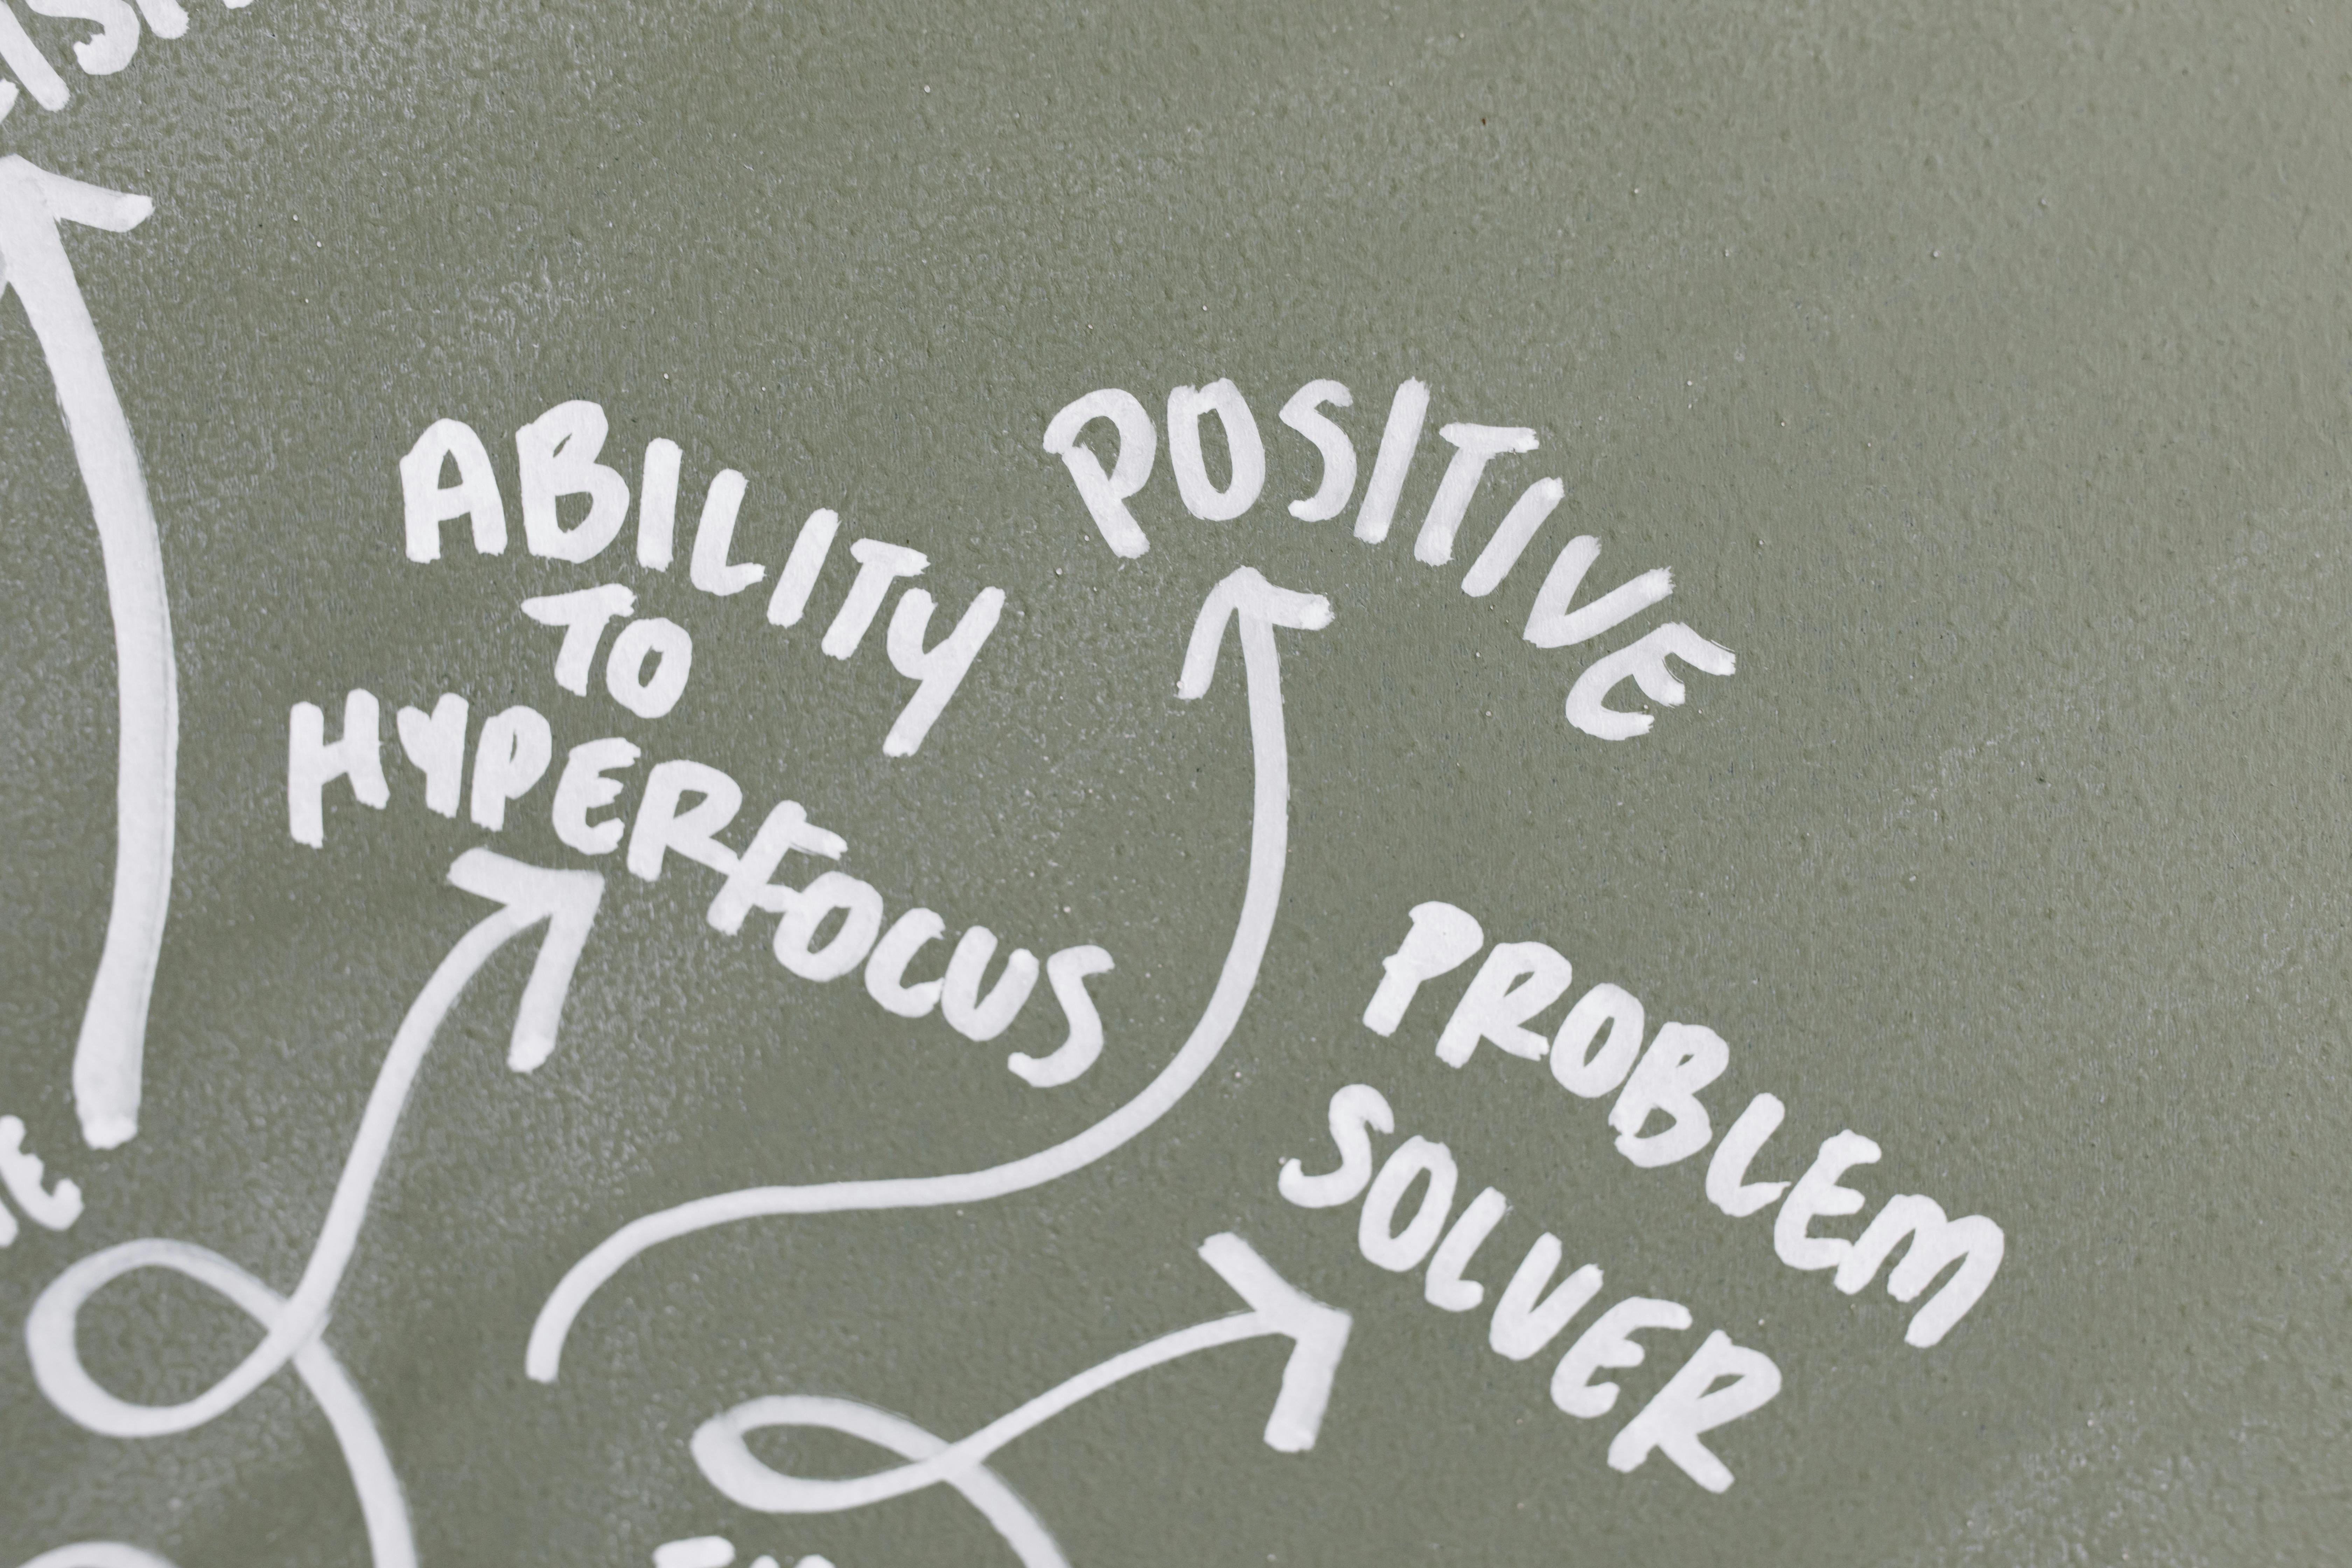 ABILITY
TO
HYPERFOCUS
POSITIVE
PROBLEM
SOLVER